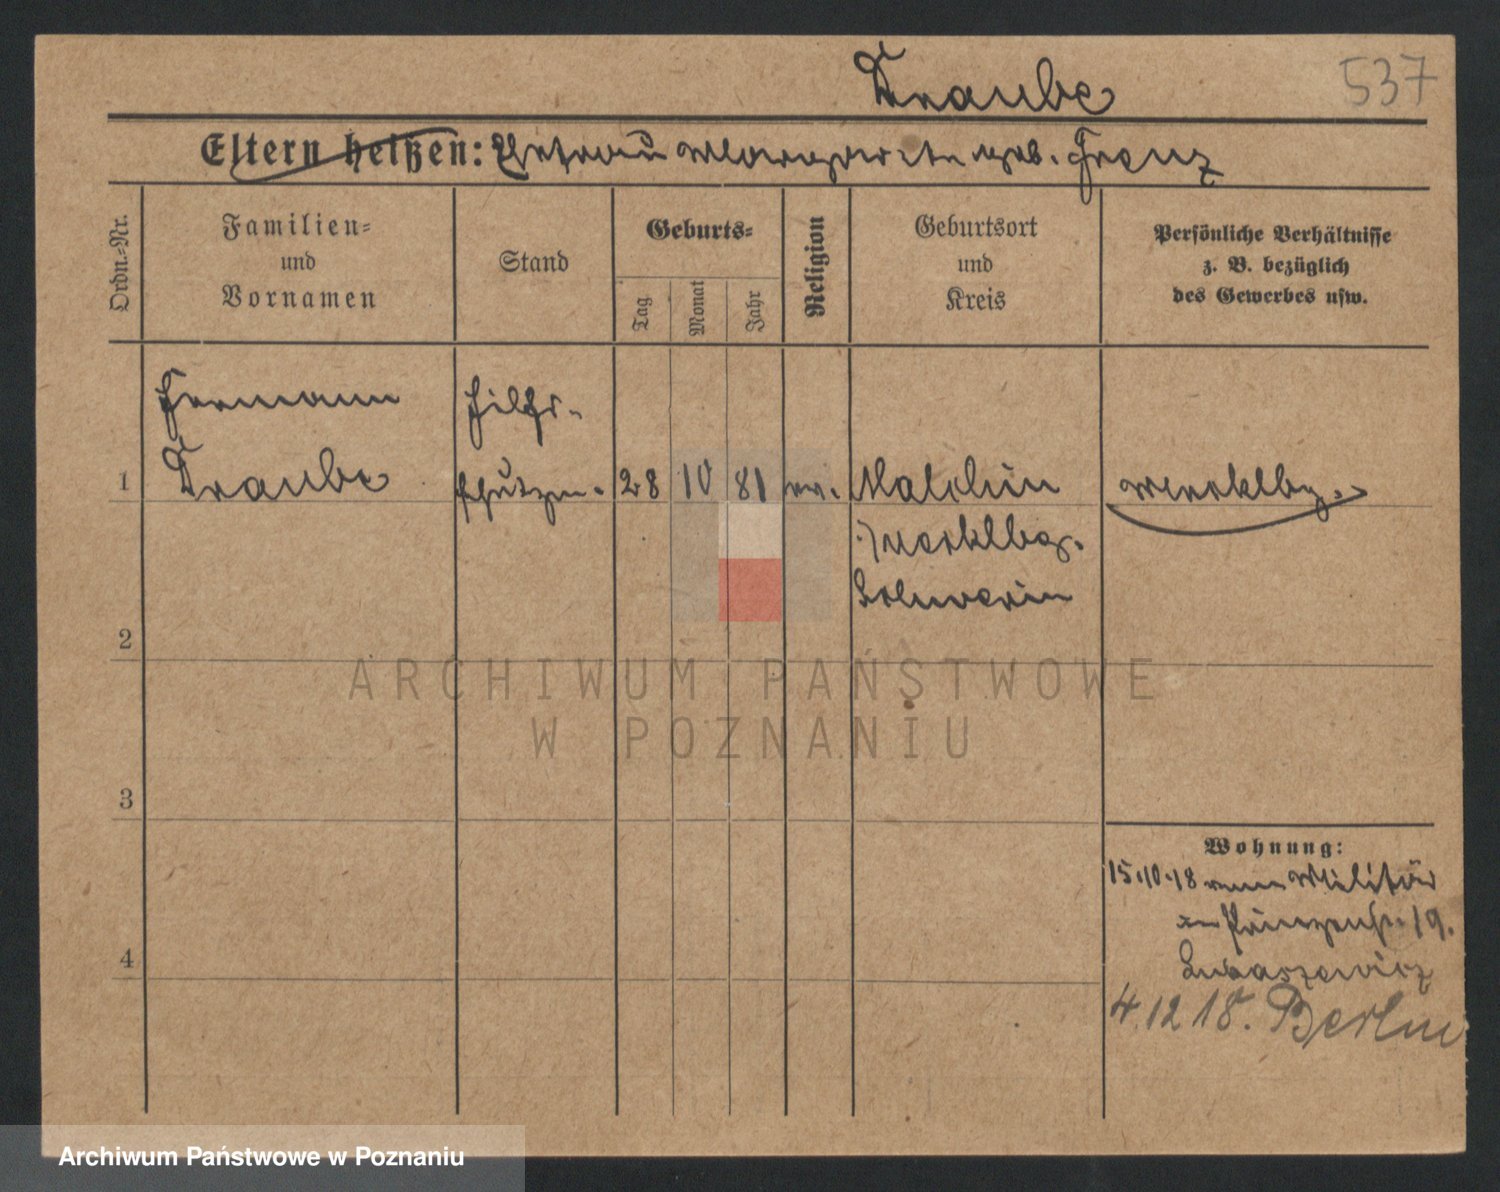 Traube
537
Eltern heißen: Ehefrau Margarete geb. Franz
Ordn.-Nr.
Familien-
und
Vornamen
Stand
Geburts-
Tag
Monat
Jahr
Religion
Geburtsort
und
Kreis
Persönliche Verhältnisse
z. B. bezüglich
des Gewerbes usw.
Hermann
Hilfs-
1
Traube
28
10
81
ev.
Malchin
Mecklbg.
Mecklbg.
Schwerin
2
ARCHIWUM PAŃSTWOWE
W POZNANIU
3
Wohnung:
15.10.18 vom Militär
19.
Lukaszewicz
4
4.12 18. Berlin
Archiwum Państwowe w Poznaniu